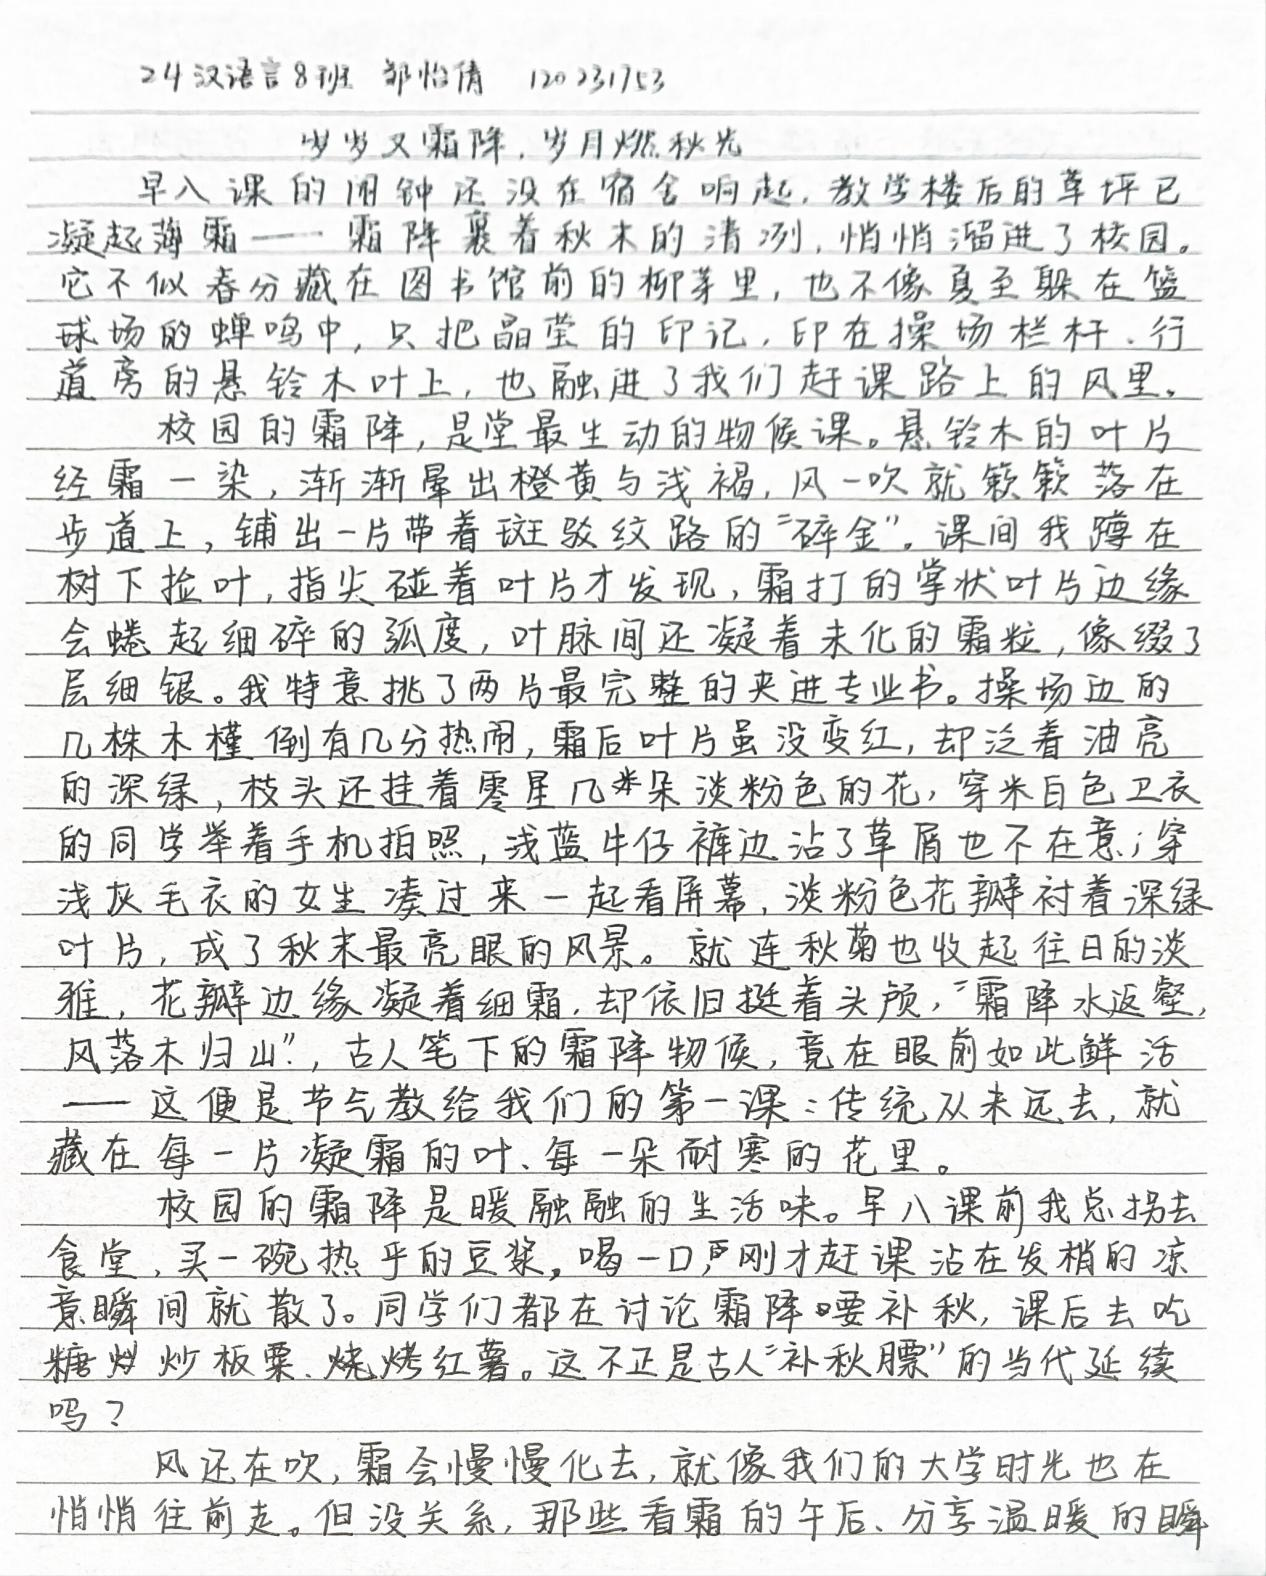 24汉语言8班 邹怡倩 120231753
岁岁又霜降，岁月燃秋光
早八课的闹钟还没在宿舍响起，教学楼后的草坪已
凝起薄霜——霜降裹着秋末的清冽，悄悄溜进了校园。
它不似春分藏在图书馆前的柳芽里，也不像夏至躲在篮
球场的蝉鸣中，只把晶莹的印记，印在操场栏杆、行
道旁的悬铃木叶上，也融进了我们赶课路上的风里。
校园的霜降，是堂最生动的物候课。悬铃木的叶片
经霜一染，渐渐晕出橙黄与浅褐，风一吹就簌簌落在
步道上，铺出一片带着斑驳纹路的“碎金”。课间我蹲在
树下捡叶，指尖碰着叶片才发现，霜打的掌状叶片边缘
会蜷起细碎的弧度，叶脉间还凝着未化的霜粒，像缀了
层细银。我特意挑了两片最完整的夹进专业书。操场边的
几株木槿倒有几分热闹，霜后叶片虽没变红，却泛着油亮
的深绿，枝头还挂着零星几朵淡粉色的花，穿米白色卫衣
的同学举着手机拍照，浅蓝牛仔裤边沾了草屑也不在意；穿
浅灰毛衣的女生凑过来一起看屏幕，淡粉色花瓣衬着深绿
叶片，成了秋末最亮眼的风景。就连秋菊也收起往日的淡
雅，花瓣边缘凝着细霜，却依旧挺着头颅，“霜降水返壑，
风落木归山”，古人笔下的霜降物候，竟在眼前如此鲜活
——这便是节气教给我们的第一课：传统从未远去，就
藏在每一片凝霜的叶、每一朵耐寒的花里。
校园的霜降是暖融融的生活味。早八课前我总拐去
食堂，买一碗热乎的豆浆，喝一口，刚才赶课沾在发梢的凉
意瞬间就散了。同学们都在讨论霜降要补秋，课后去吃
糖炒板栗、烧烤红薯。这不正是古人“补秋膘”的当代延续
吗？
风还在吹，霜会慢慢化去，就像我们的大学时光也在
悄悄往前走。但没关系，那些看霜的午后、分享温暖的瞬